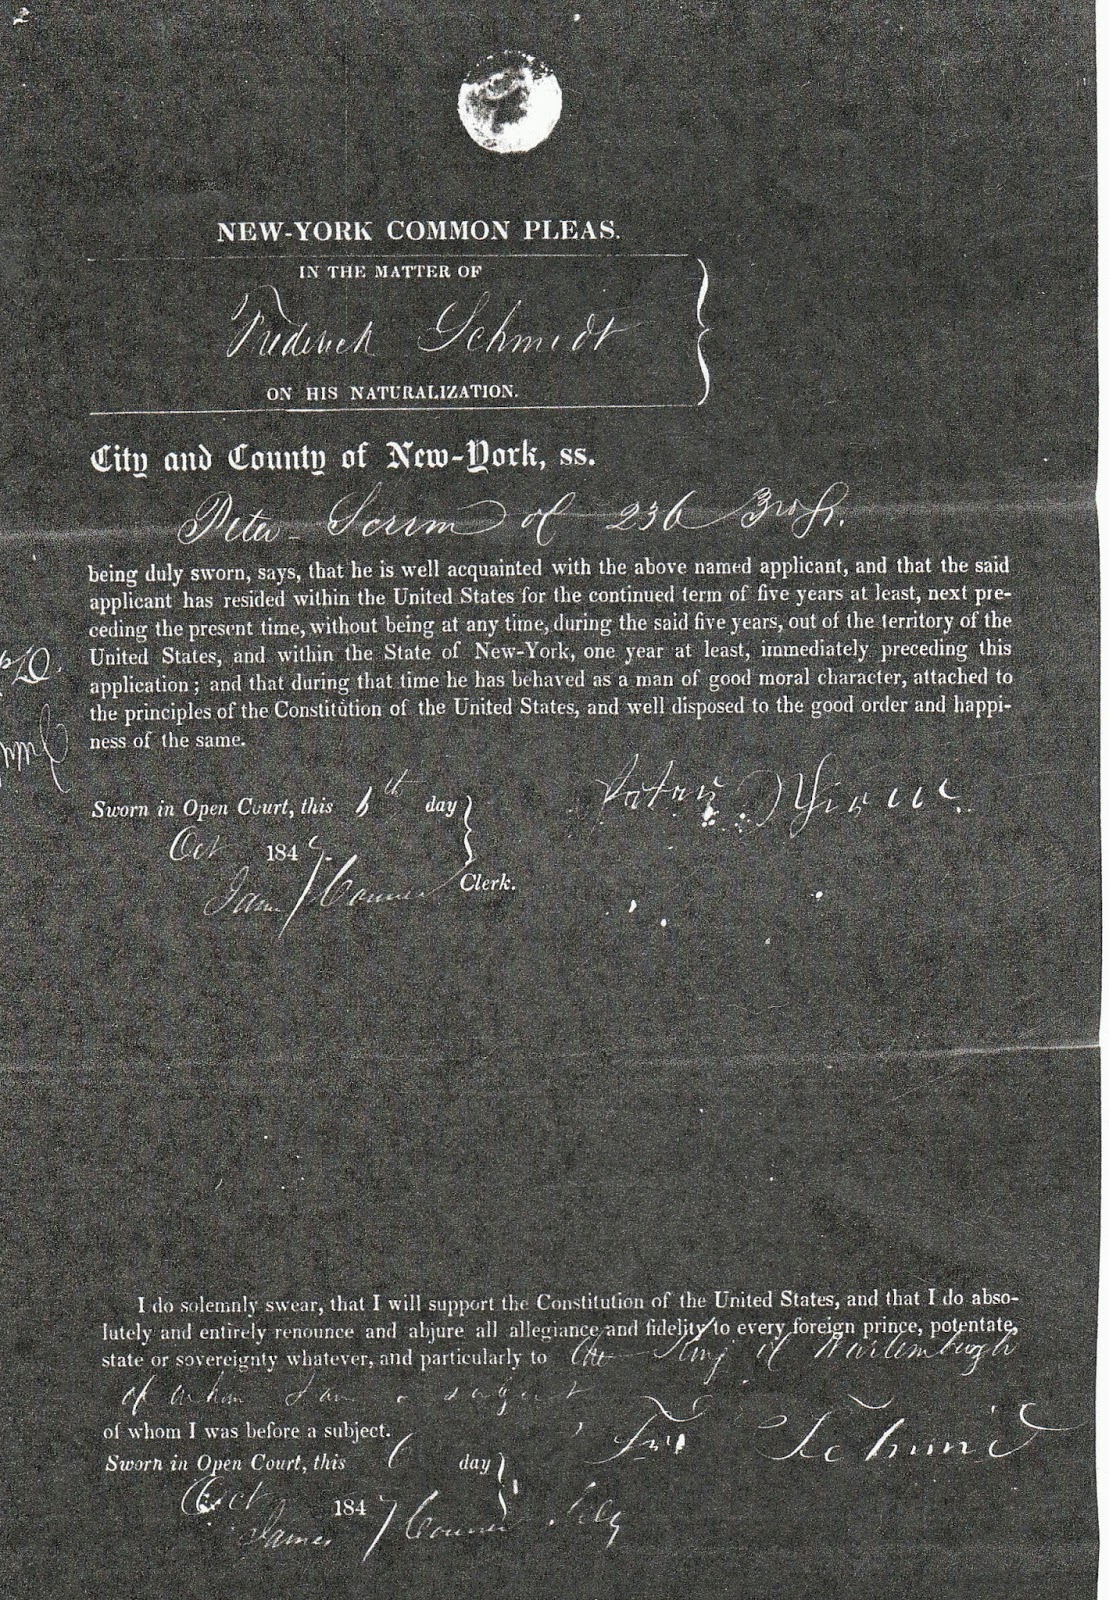 NEW-YORK COMMON PLEAS.
IN THE MATTER OF
Frederick Schmidt
ON HIS NATURALIZATION.
City and County of New-York, ss.
Peter of 236 3rd St.
being duly sworn, says, that he is well acquainted with the above named applicant, and that the said
applicant has resided within the United States for the continued term of five years at least, next pre-
ceding the present time, without being at any time, during the said five years, out of the territory of the
United States, and within the State of New-York, one year at least, immediately preceding this
application; and that during that time he has behaved as a man of good moral character, attached to
the principles of the Constitution of the United States, and well disposed to the good order and happi-
ness of the same.
Sworn in Open Court, this 6th day
Oct 184
James Conner Clerk.
I do solemnly swear, that I will support the Constitution of the United States, and that I do abso-
lutely and entirely renounce and abjure all allegiance and fidelity to every foreign prince, potentate,
state or sovereignty whatever, and particularly to the King of Wurtemburgh
of whom I am a subject
of whom I was before a subject.
Sworn in Open Court, this 6 day
Oct 1847
James Conner Clk